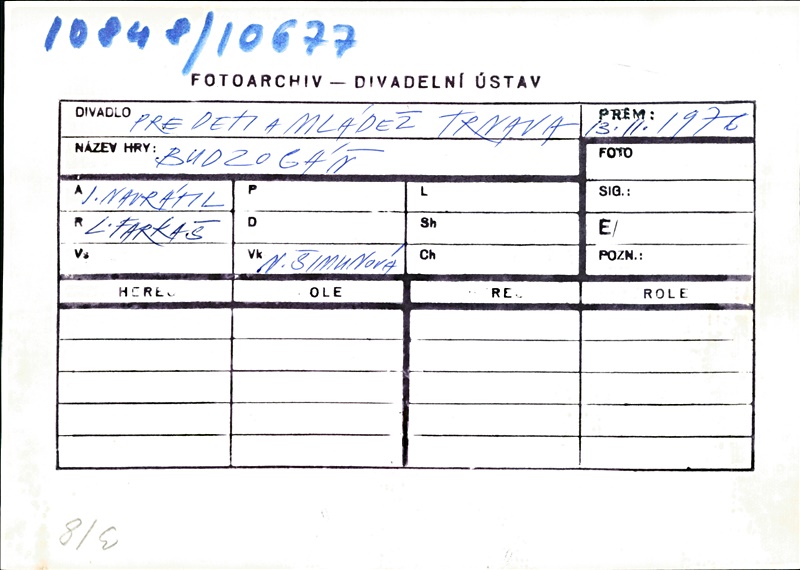 10848/10677
FOTOARCHIV — DIVADELNÍ ÚSTAV
DIVADLO PRE DETI A MLÁDEŽ TRNAVA PRÉM: 13. 11. 1976
NÁZEV HRY: BUDZOGÁŇ FOTO
A J. NAVRÁTIL P L SIG.:
R L. FARKAŠ D Sh E/
Vs Vk N. ŠIMUNOVÁ Ch POZN.:
HEREC OLE RE ROLE
8/3